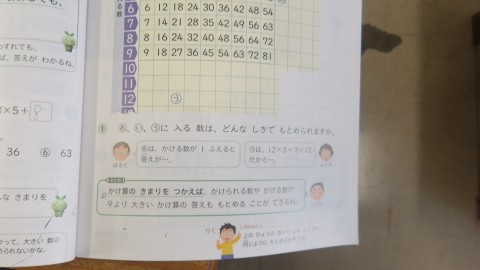 る数
6 6 12 18 24 30 36 42 48 54
7 7 14 21 28 35 42 49 56 63
8 8 16 24 32 40 48 56 64 72
9 9 18 27 36 45 54 63 72 81
10
11
12 ㋒
わすれても、
ば、答えが わかるね。
×5+8
36 ⑥ 63
な きまりを
って、大きい 数の
られないかな。
1 ㋐、㋑、㋒に 入る 数は、どんな しきで もとめられますか。
㋐は、かける数が 1 ふえると
答えが…。
㋒は、12×3=3×12
だから…。
はると
かけ算の きまりを つかえば、かけられる数や かける数が
9より 大きい かけ算の 答えも もとめる ことが できるね。
りく
上の ひょうの
同じように